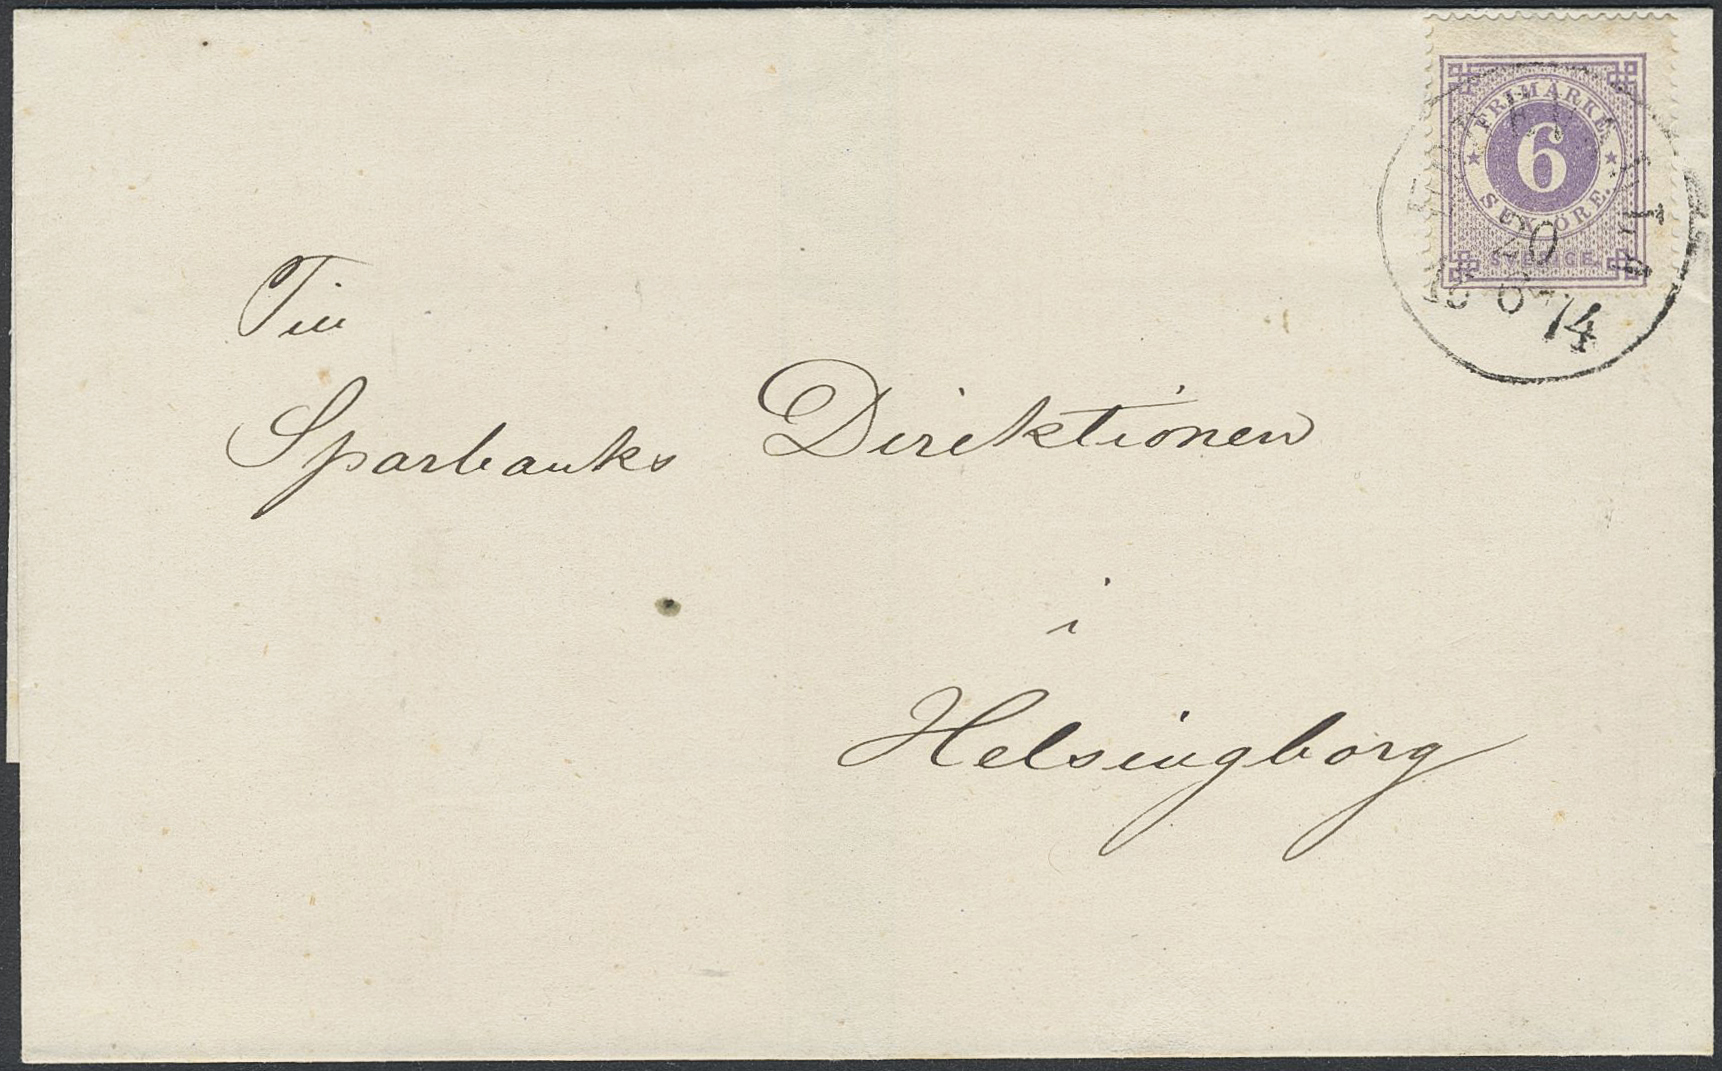 FRIMÄRKE
6
SEX ÖRE.
SVERIGE.
20
6
74
Till
Sparbanks Direktionen
i
Helsingborg